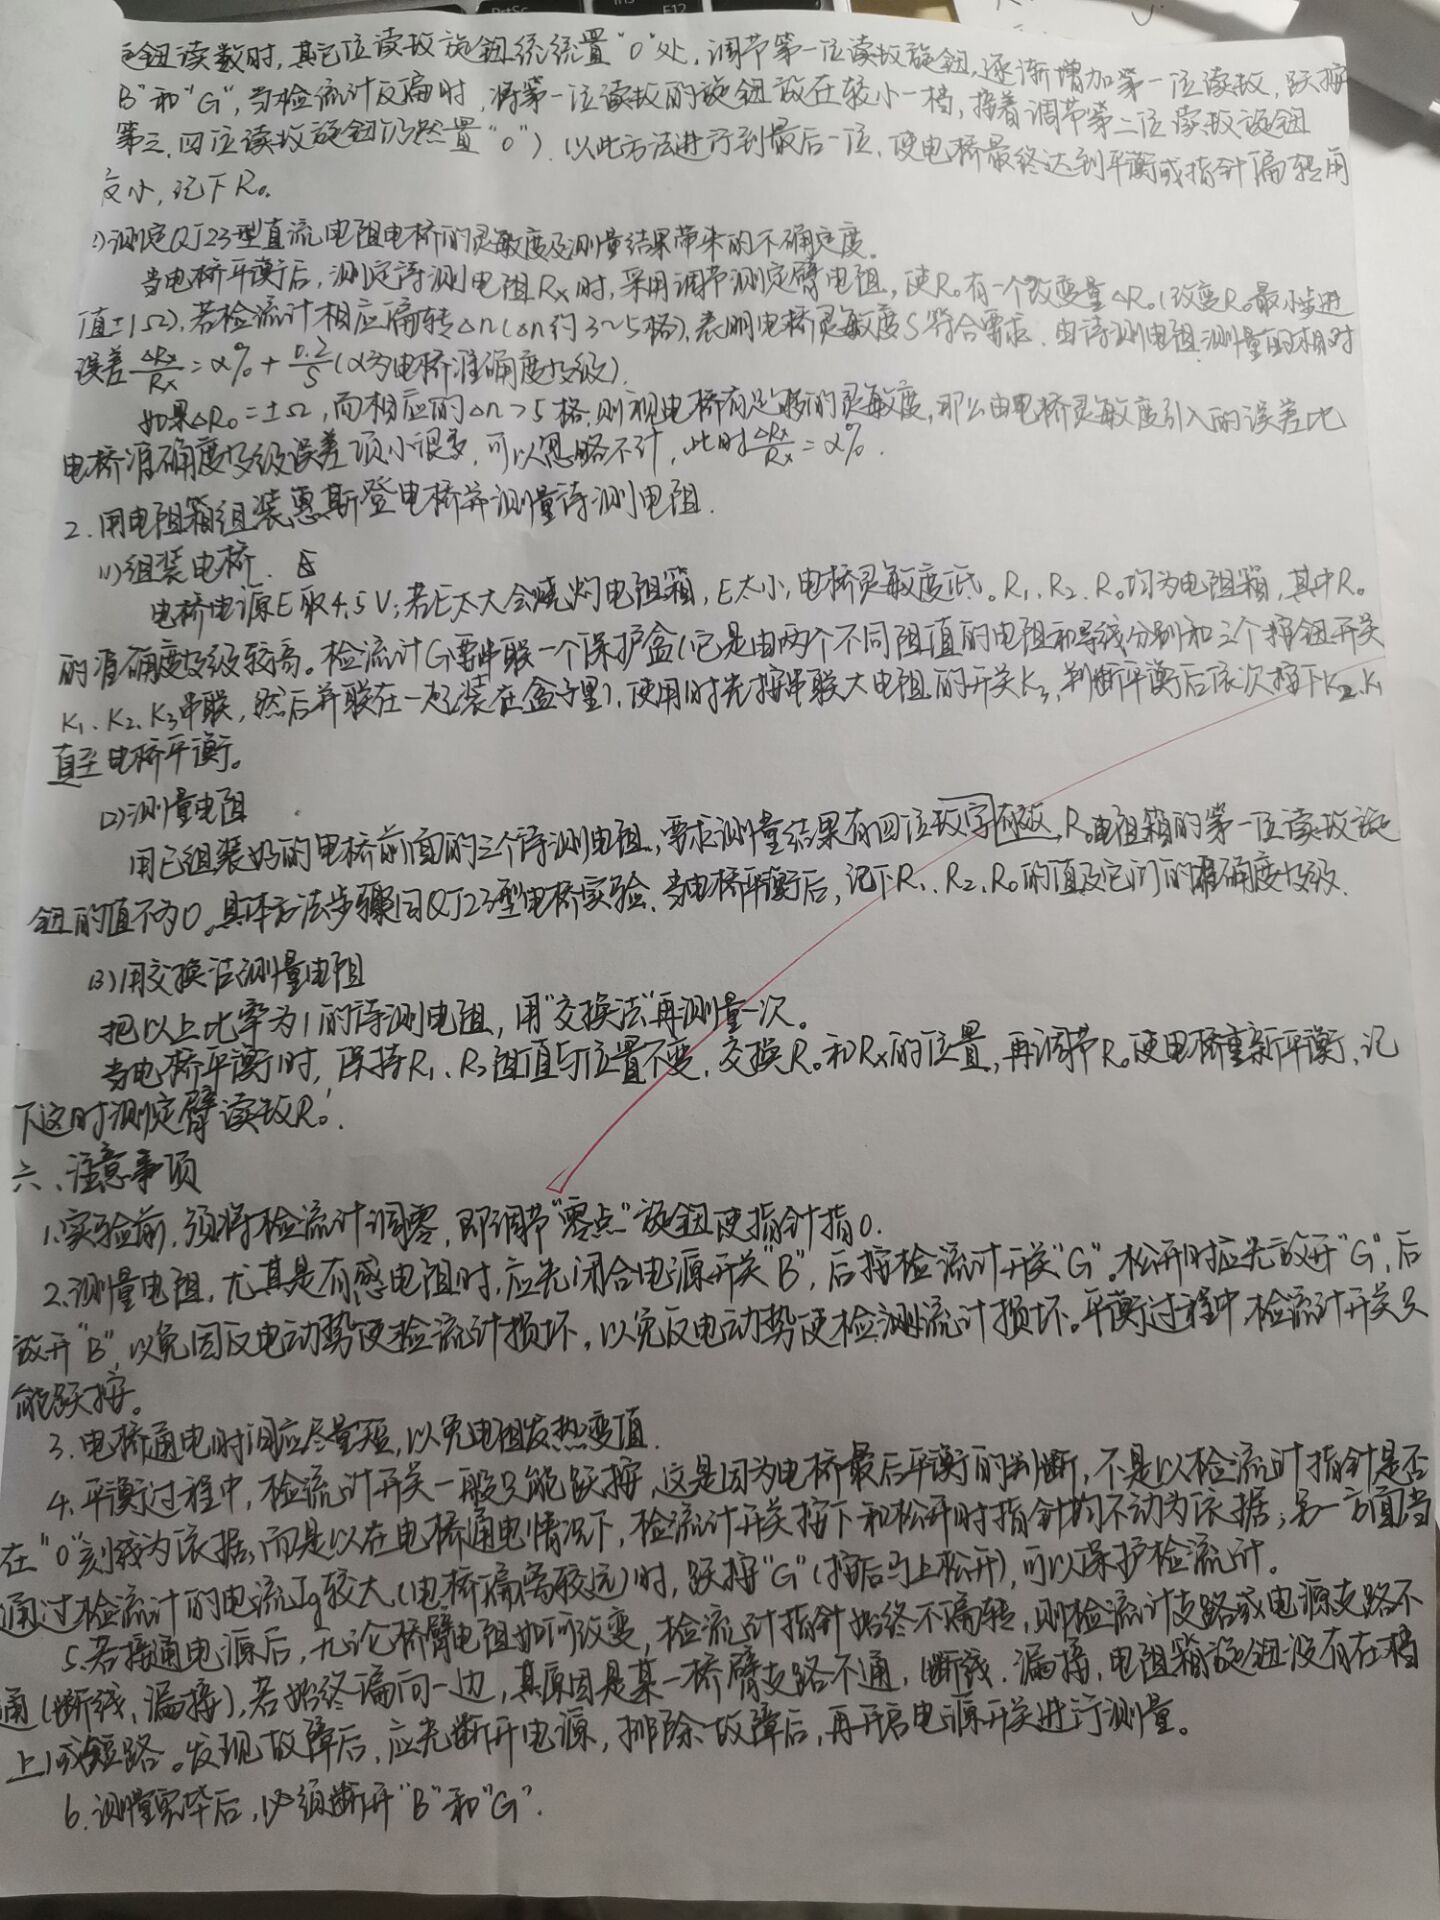 PrtSc
Ins
F12
钮读数时,其它位读数旋钮统统置"0"处,调节第一位读数旋钮,逐渐增加第一位读数,跃按
B"和"G",当检流计反偏时,将第一位读数的旋钮放在较小一档,接着调节第二位读数旋钮
第三、四位读数旋钮仍然置"0"),以此方法进行到最后一位,使电桥最终达到平衡或指针偏转用
度小,记下R₀。
)测定QJ23型直流电阻电桥的灵敏度及测量结果带来的不确定度。
当电桥平衡后,测定待测电阻Rx时,采用调节测定臂电阻,使R₀有一个改变量△R₀(改变R₀最小步进
值±1Ω),若检流计相应偏转△n(△n约3~5格),表明电桥灵敏度S符合要求,由待测电阻测量值的相对
误差△Rx/Rx=α%+0.2/S(α为电桥准确度等级)
如果△R₀=±Ω,而相应的△n>5格,则视电桥有足够的灵敏度,那么由电桥灵敏度引入的误差比
电桥准确度等级误差项小很多,可以忽略不计,此时△Rx/Rx=α%.
2.用电阻箱组装惠斯登电桥并测量待测电阻.
(1)组装电桥.
电桥电源E取4.5V;若E太大会烧灼电阻箱,E太小,电桥灵敏度低。R₁、R₂、R₀均为电阻箱,其中R₀
的准确度等级较高。检流计G要串联一个保护盒(它是由两个不同阻值的电阻和导线分别和三个按钮开关
K₁、K₂、K₃串联,然后并联在一起装在盒子里),使用时先按串联大电阻的开关K₃,判断平衡后依次按下K₂、K₁
直至电桥平衡。
(2)测量电阻
用已组装好的电桥前面的三个待测电阻,要求测量结果有四位数字有效,R₀电阻箱的第一位读数旋
钮的值不为0。具体方法步骤同QJ23型电桥实验.当电桥平衡后,记下R₁、R₂、R₀的值及它们的准确度等级.
(3)用交换法测量电阻
把以上比率为1的待测电阻,用"交换法"再测量一次。
当电桥平衡时,保持R₁、R₂阻值与位置不变,交换R₀和Rx的位置,再调节R₀使电桥重新平衡,记
下这时测定臂读数R₀'.
六、注意事项
1.实验前,须将检流计调零,即调节"零点"旋钮使指针指0.
2.测量电阻,尤其是有感电阻时,应先闭合电源开关"B",后按检流计开关"G"。松开时应先放开"G",后
放开"B",以免因反电动势使检流计损坏,以免反电动势使检测流计损坏。平衡过程中,检流计开关只
能跃按。
3.电桥通电时间应尽量短,以免电阻发热变值.
4.平衡过程中,检流计开关一般只能跃按,这是因为电桥最后平衡的判断,不是以检流计指针是否
在"0"刻线为依据,而是以在电桥通电情况下,检流计开关按下和松开时指针均不动为依据;另一方面当
通过检流计的电流Ig较大(电桥偏离较远)时,跃按"G"(按后马上松开),可以保护检流计。
5.若接通电源后,无论桥臂电阻如何改变,检流计指针始终不偏转,则检流计支路或电源支路不
通(断线、漏接),若始终偏向一边,其原因是某一桥臂支路不通,(断线、漏接,电阻箱旋钮没有在档
上)或短路。发现故障后,应先断开电源,排除故障后,再开启电源开关进行测量。
6.测量完毕后,必须断开"B"和"G".